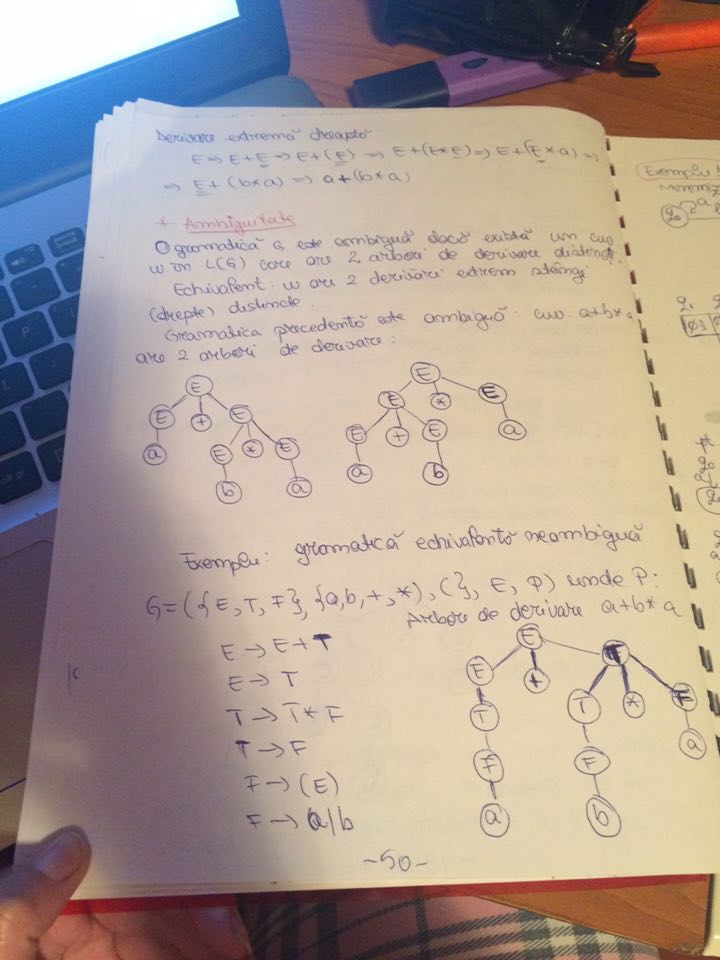 Derivare extremă dreaptă
E ⇒ E+E ⇒ E+(E) ⇒ E+(E*E) ⇒ E+(E*a) ⇒
⇒ E+(b*a) ⇒ a+(b*a)
* Ambiguitate
O gramatică G este ambiguă dacă există un cuv
w în L(G) care are 2 arbori de derivare distincți.
Echivalent: w are 2 derivări extrem stângi
(drepte) distincte.
Gramatica precedentă este ambiguă: cuv a+b*a
are 2 arbori de derivare:
E
E + E
a E * E
b a
E
E * E
E + E a
a b
Exemplu: gramatică echivalentă neambiguă
G=({E,T,F},{a,b,+,*),(}, E, P) unde P:
Arbore de derivare a+b*a
E → E+T
E → T
T → T*F
T → F
F → (E)
F → a/b
E
E + T
T T * F
F F a
a b
-50-
Exemplu
pause
break
P
L